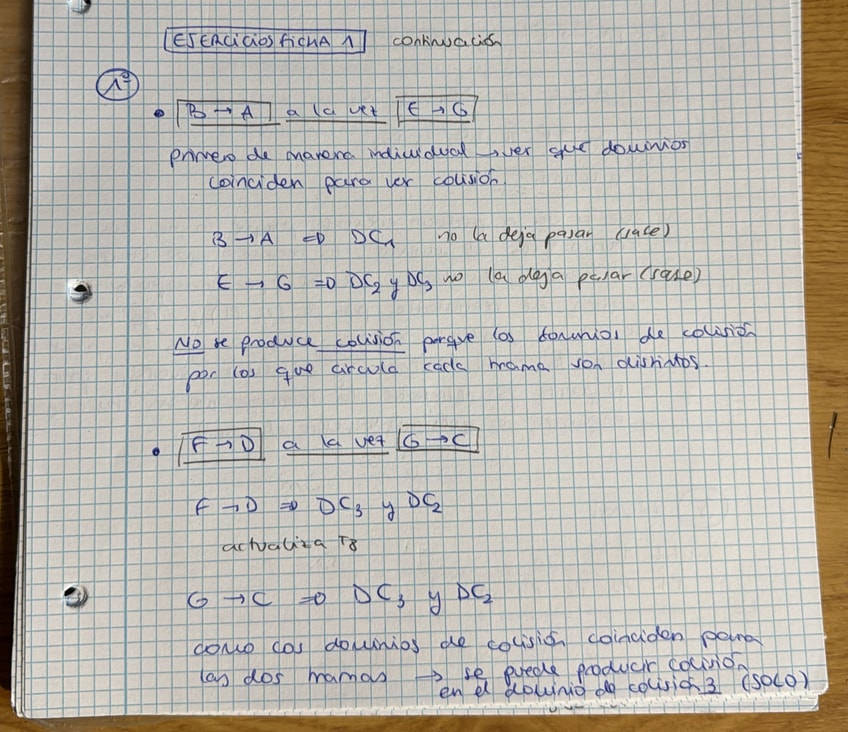 EJERCICIOS FICHA 1 continuación
1º
• B → A a la vez E → G
primero de manera individual → ver que dominios
coinciden para ver colisión.
B → A ⇒ DC1 no la deja pasar (sabe)
E → G ⇒ DC2 y DC3 no la deja pasar (sabe)
NO se produce colisión porque los dominios de colisión
por los que circula cada trama son distintos.
• F → D a la vez G → C
F → D ⇒ DC3 y DC2
actualiza TB
G → C ⇒ DC3 y DC2
como los dominios de colisión coinciden para
las dos tramas → se puede producir colisión
en el dominio de colisión 3 (SOLO)